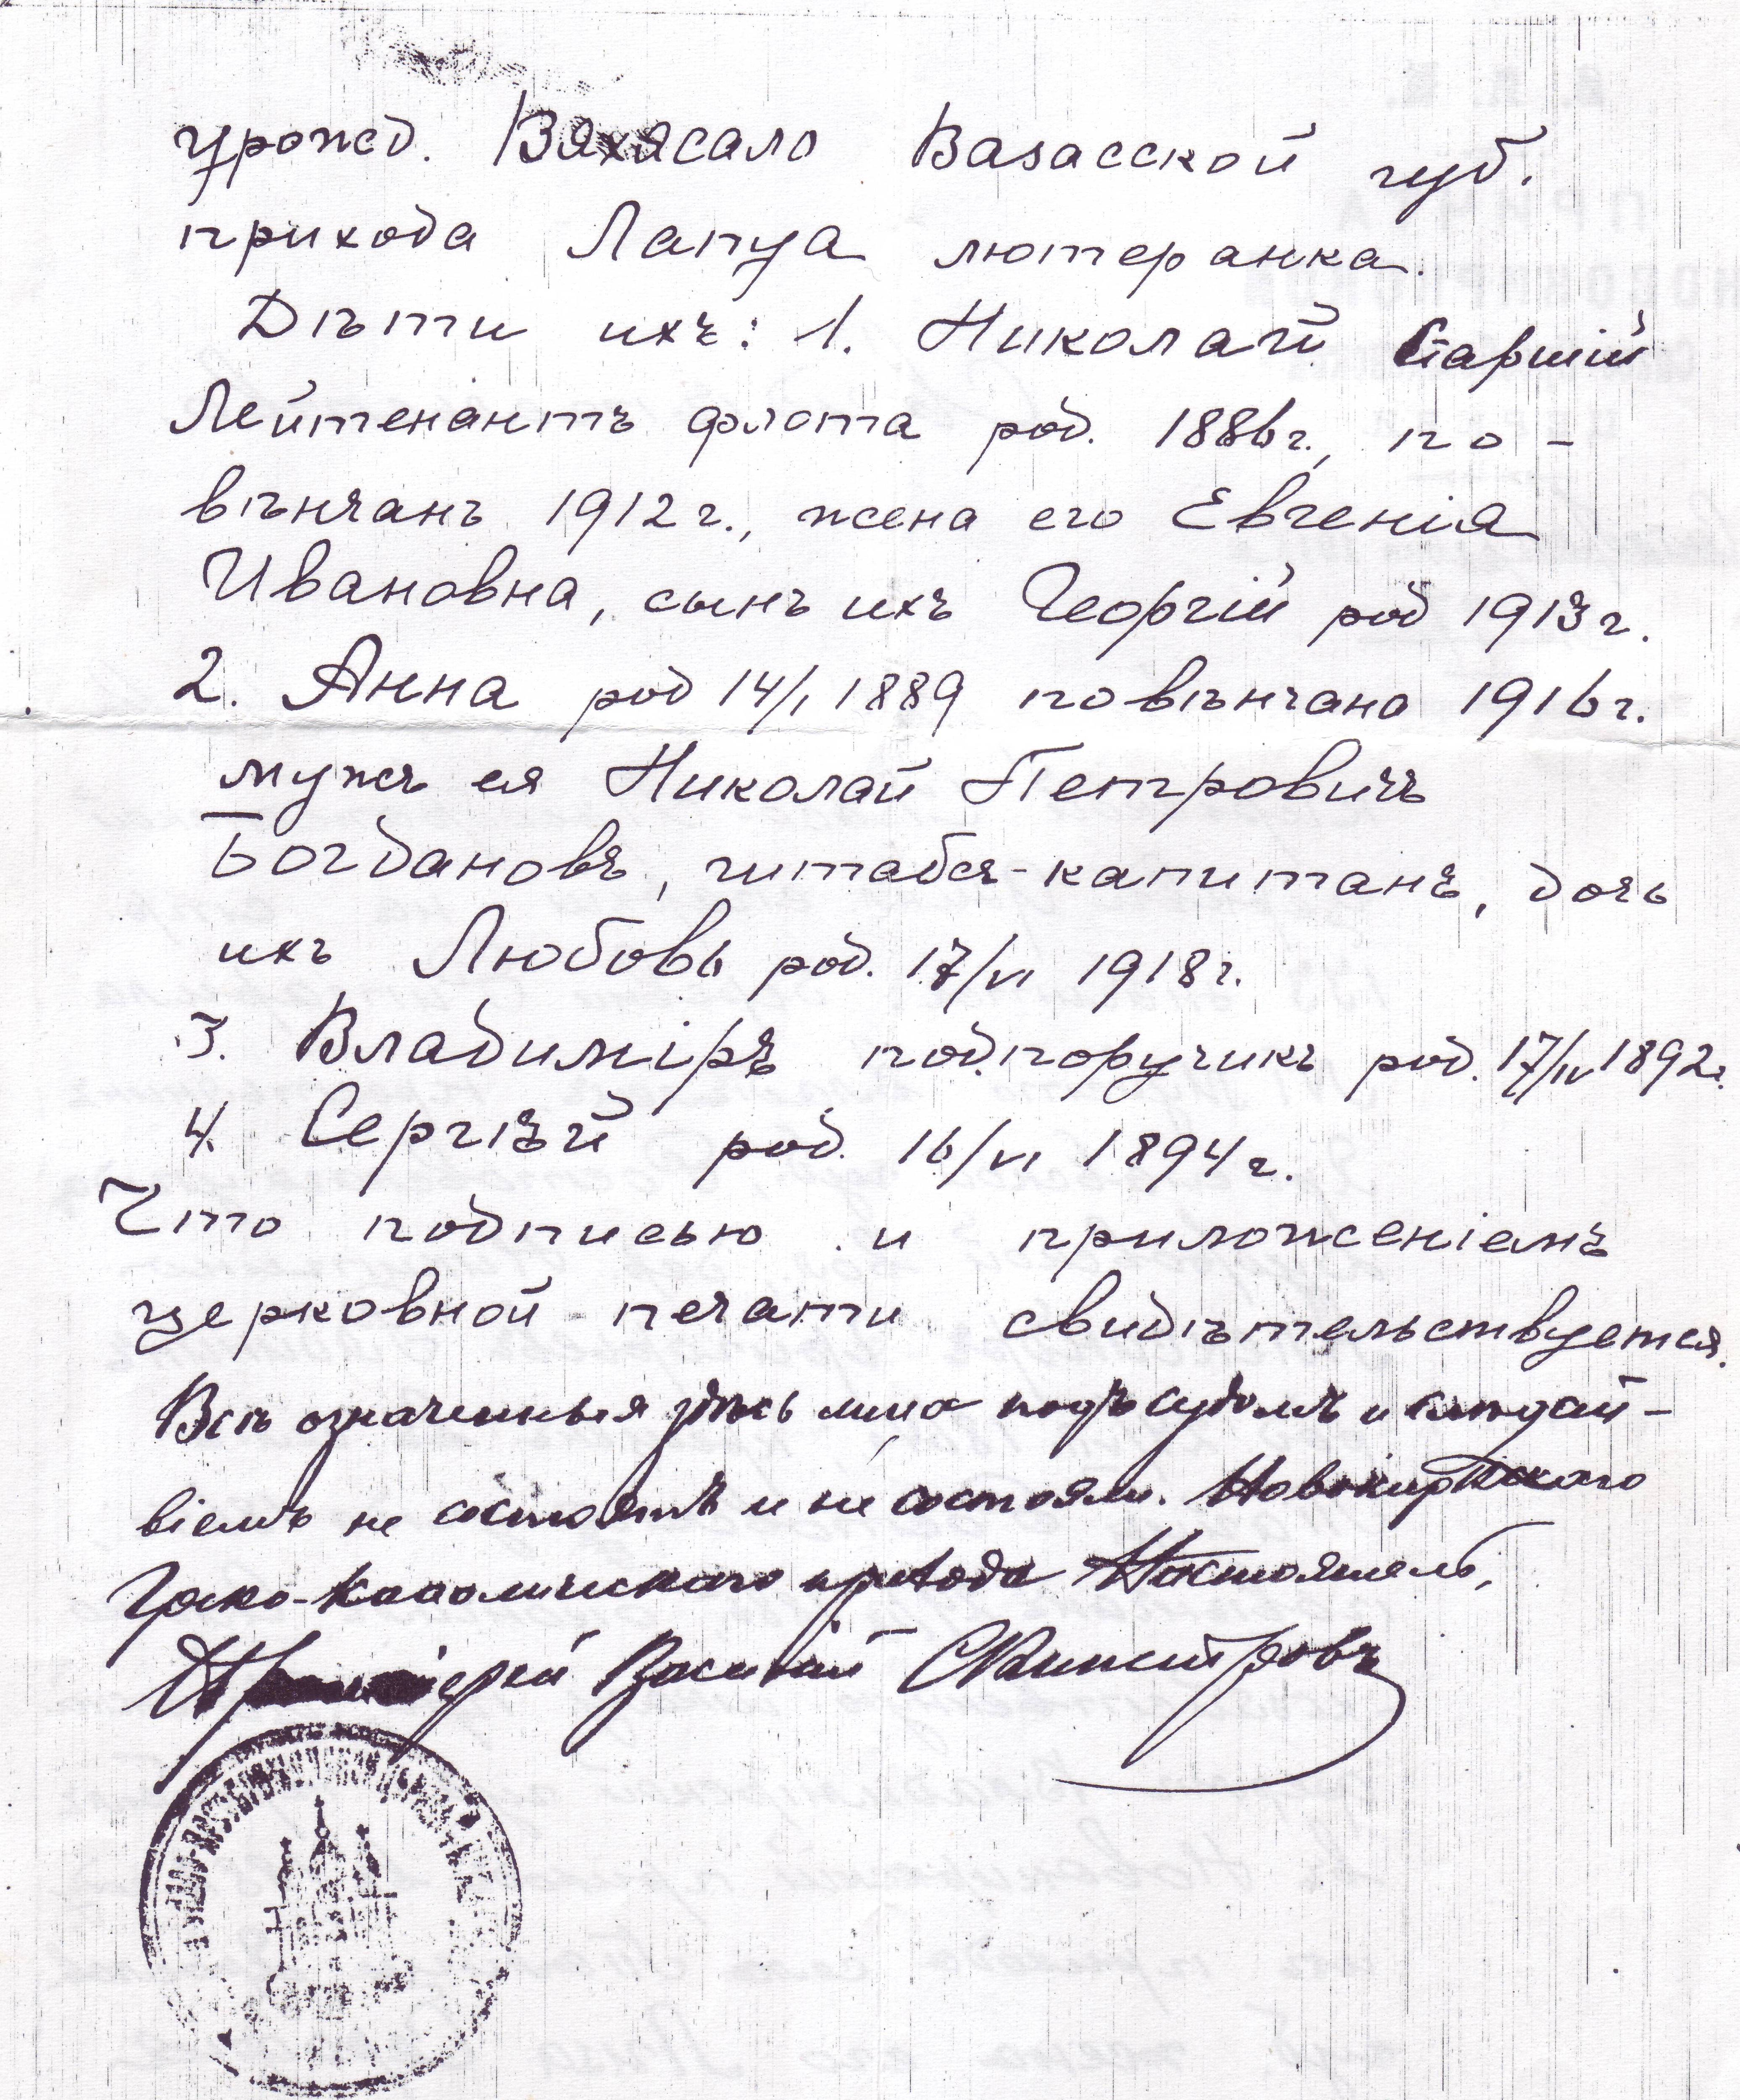 урожд. Вяхясало Вазасской губ.
прихода Лапуа лютеранка.
Дѣти ихъ: 1. Николай Старшій
Лейтенантъ флота род. 1886 г., по-
вѣнчанъ 1912 г., жена его Евгенія
Ивановна, сынъ ихъ Георгій род 1913 г.
2. Анна род 14/I 1889 повѣнчана 1916 г.
мужъ ея Николай Петровичъ
Богдановъ, штабсъ-капитанъ, дочь
ихъ Любовь род. 17/VI 1918 г.
3. Владиміръ подпоручикъ род. 17/IV 1892 г.
4. Сергѣй род. 16/VI 1894 г.
Что подписью и приложеніемъ
церковной печати свидѣтельствуется.
Всѣ означенныя здѣсь лица подъ судомъ и слѣдст-
віемъ не состоятъ и не состояли. Новокиркскаго
Греко-Каѳолическаго прихода Настоятель,
Василій